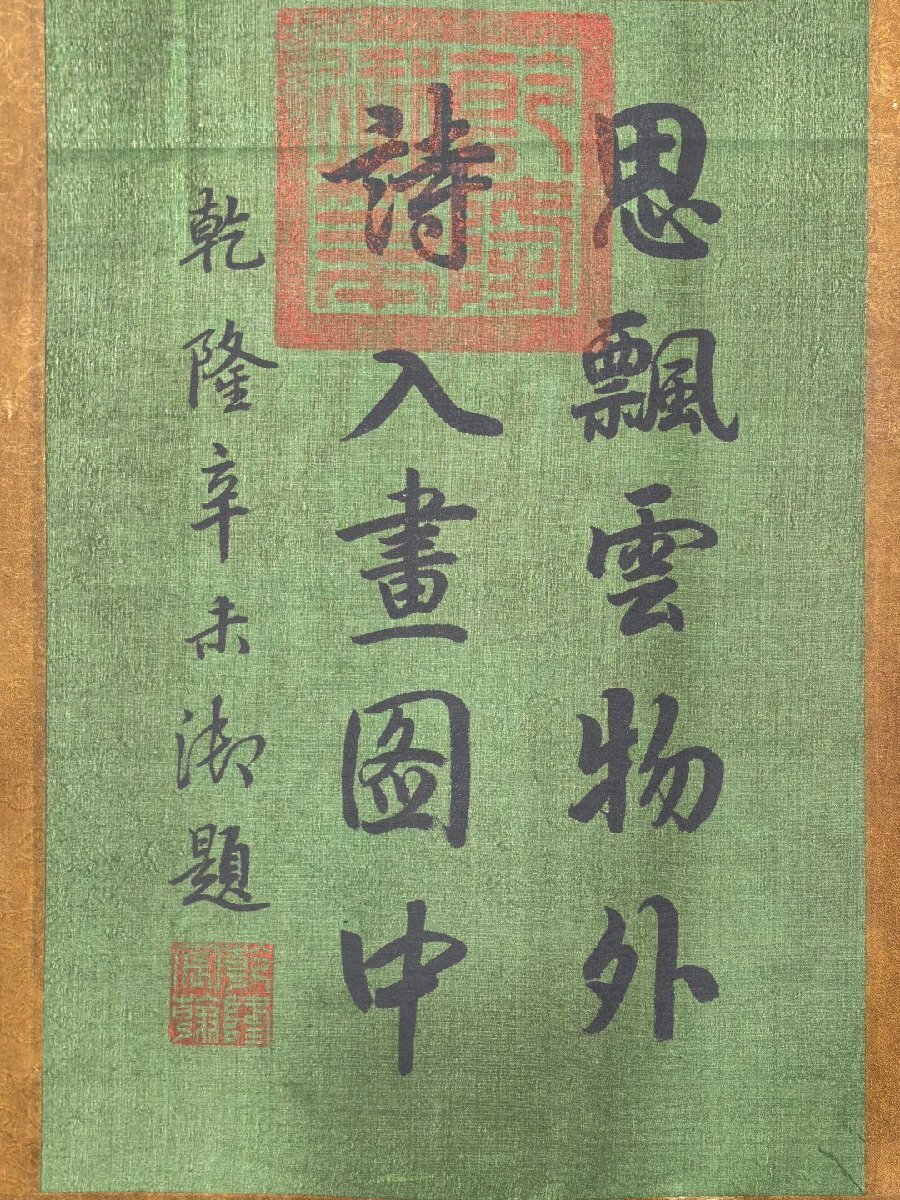 思飄雲物外
詩入畫圖中
乾隆辛未御題
乾隆御筆
乾隆宸翰